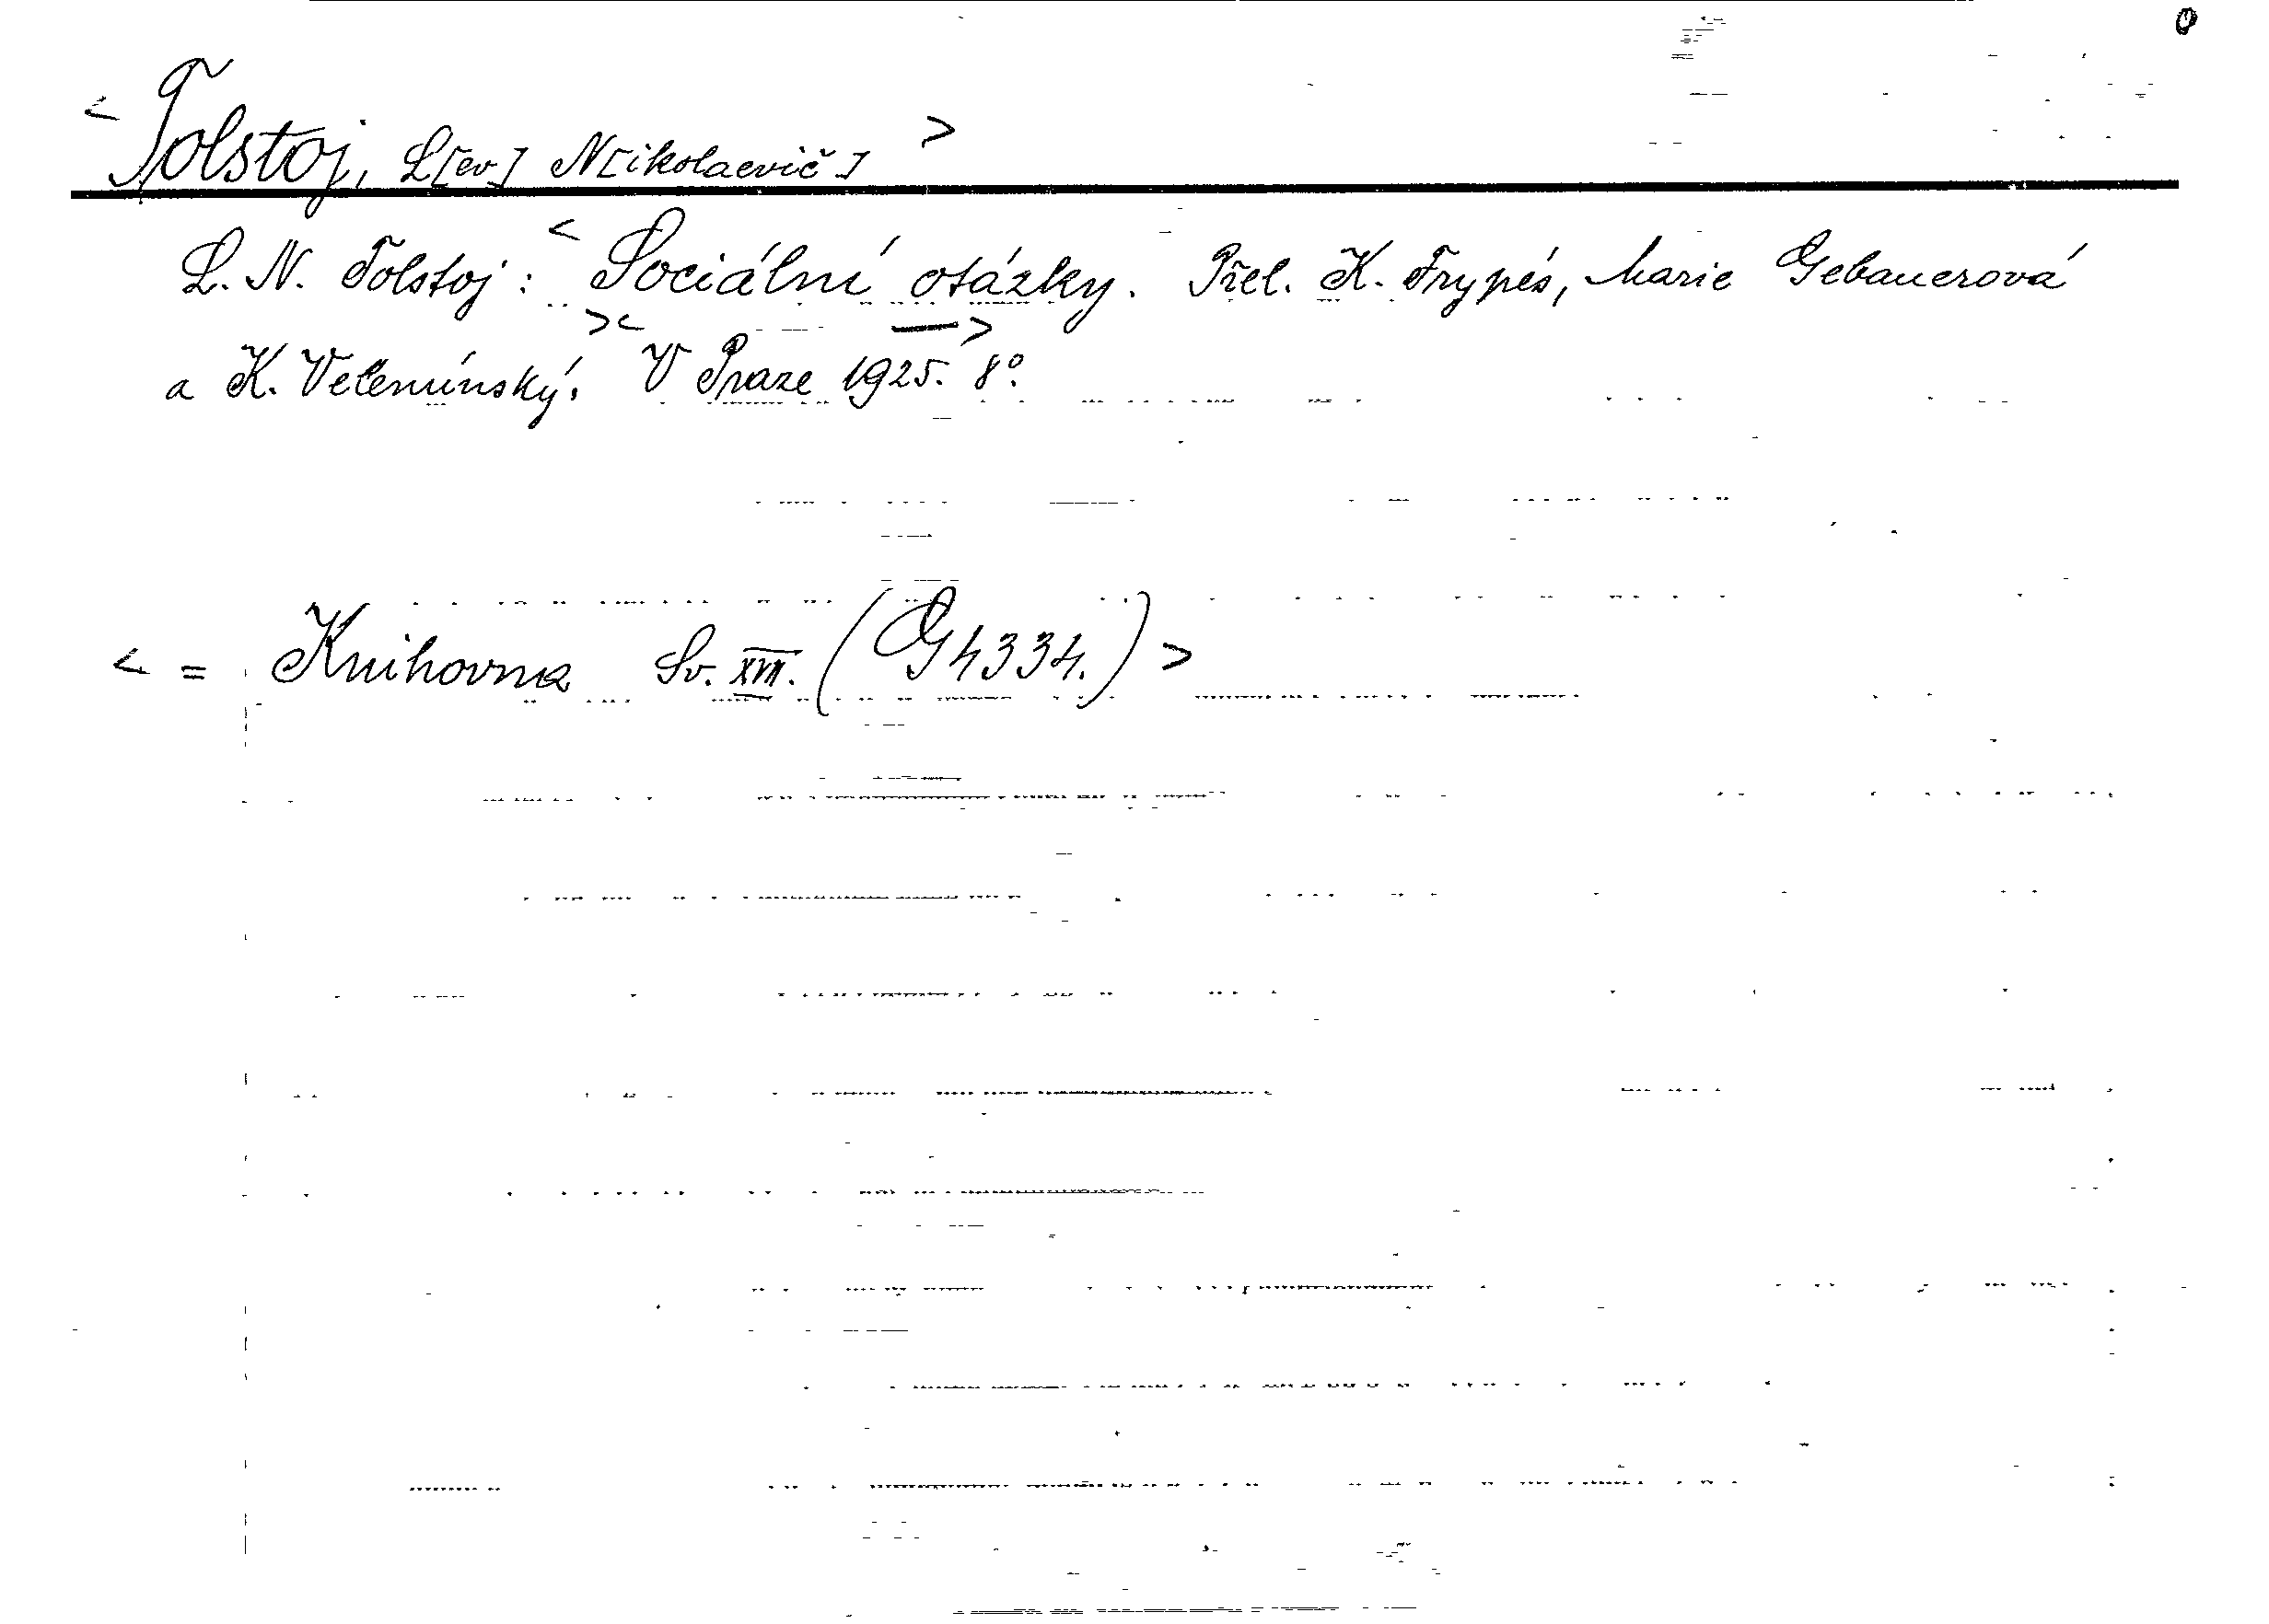 < Tolstoj, L[ev] N[ikolaevič] >
L. N. Tolstoj: < Sociální otázky. Přel. K. Frypés, Marie Gebauerová
a K. Velemínský. >< V Praze 1925. 8°. >
< = Knihovna Sv. XVII. (G4334.) >